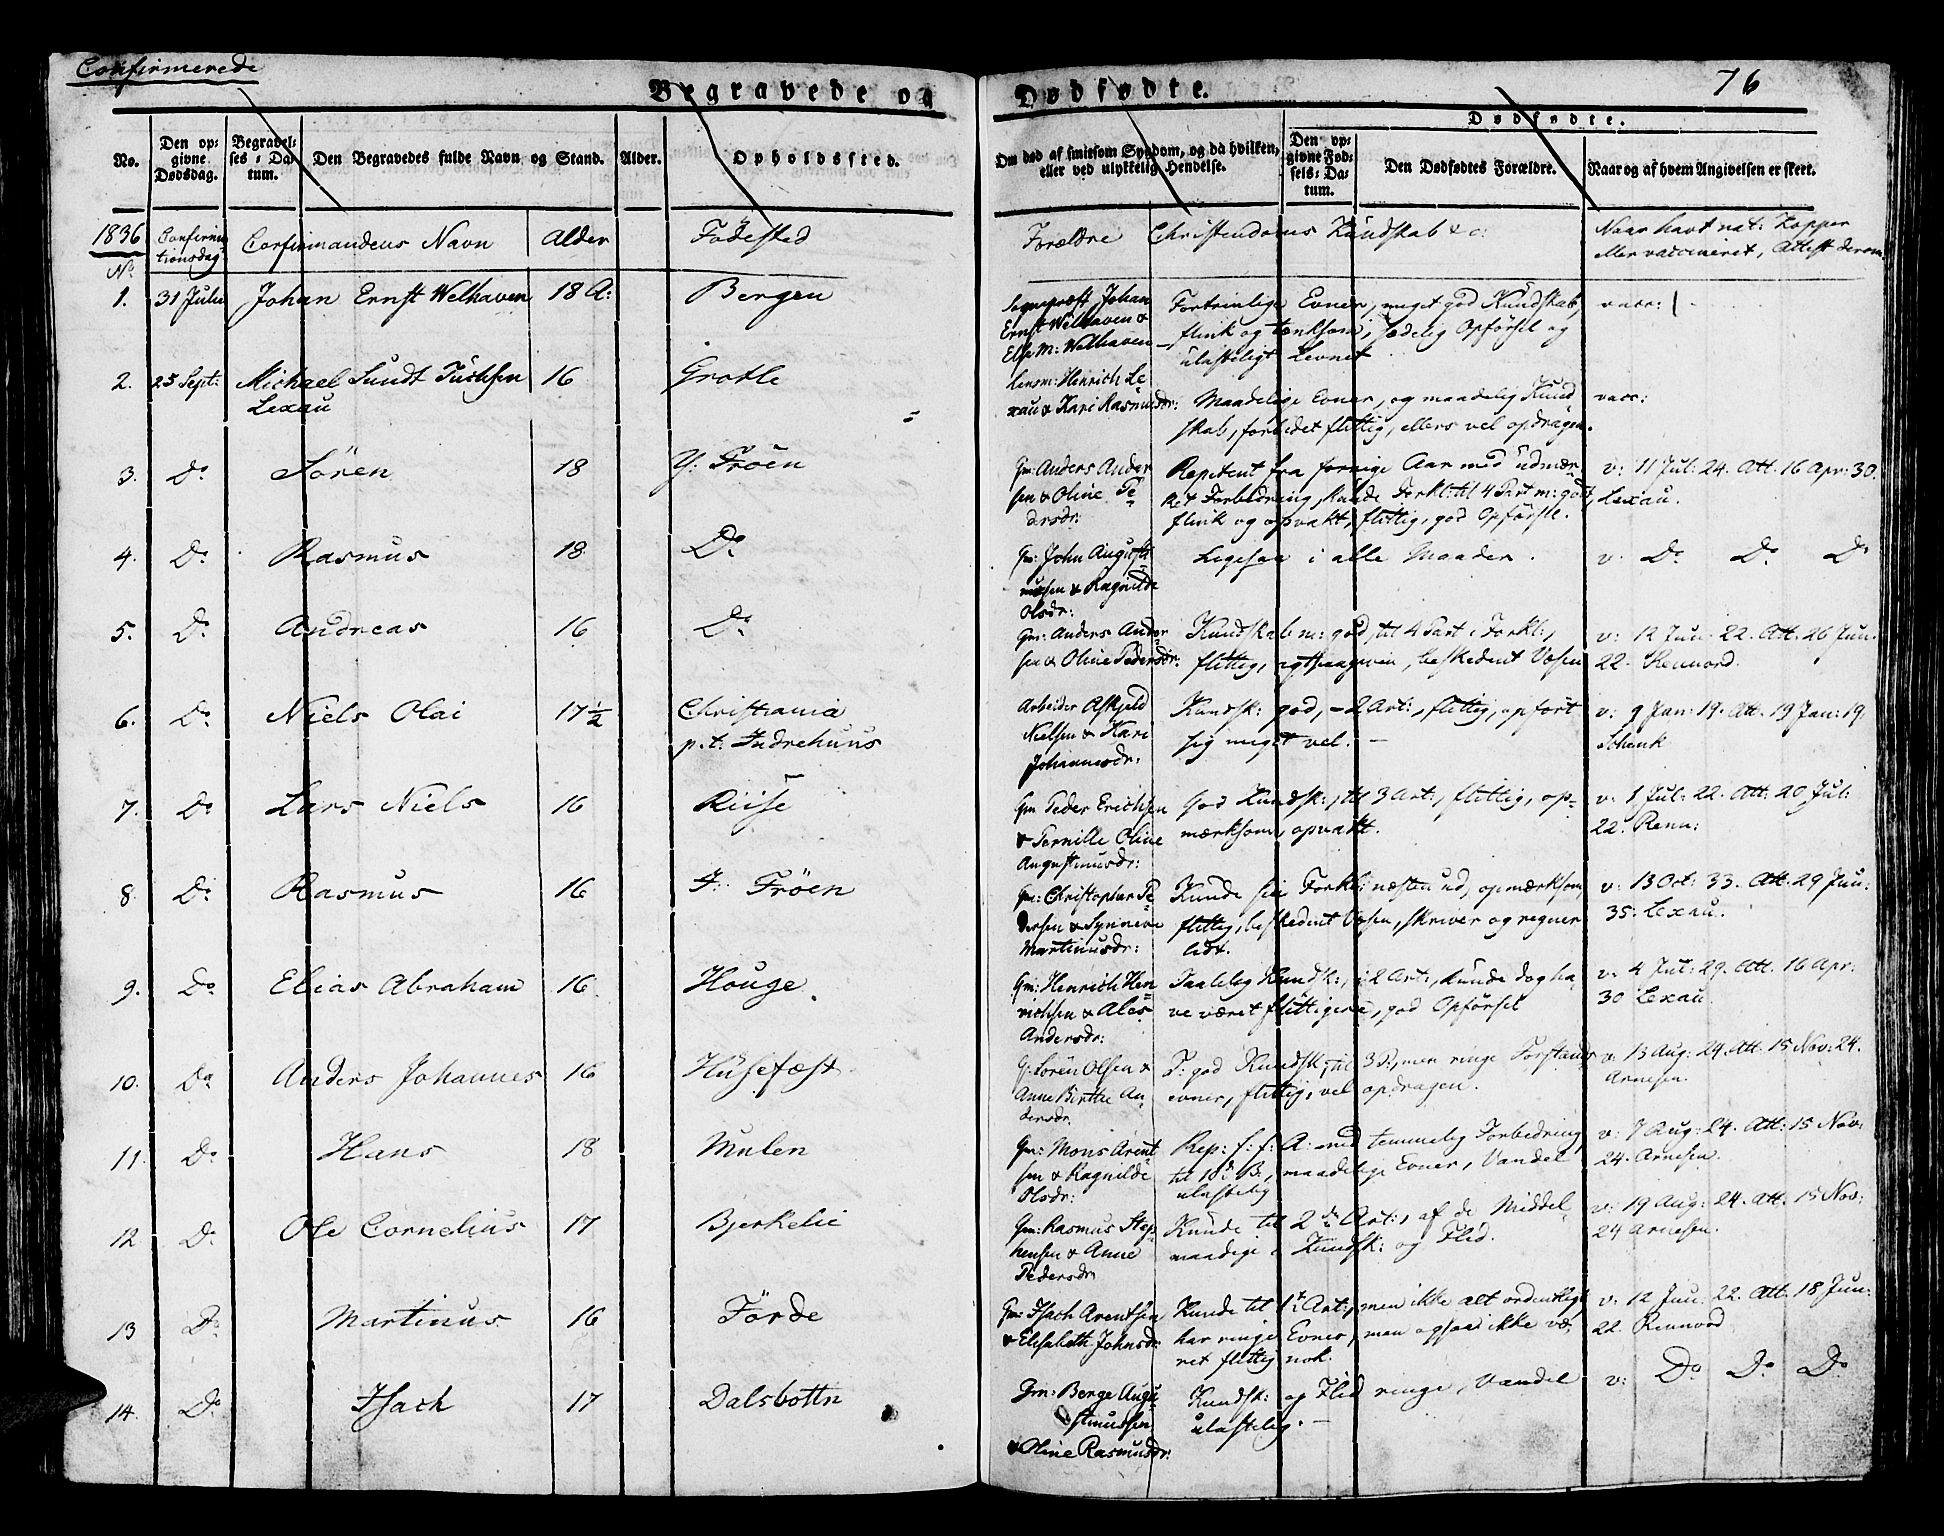 Confirmerede
Begravede og Dødfødte.
76
Dødfødte.
No.
Den opgivne Dødsdag.
Begravelses-Datum.
Den Begravedes fulde Navn og Stand.
Alder.
Opholdssted.
Om død af smitsom Sygdom, og da hvilken, eller ved ulykkelig Hendelse.
Den opgivne Fødsels-Datum.
Den Dødfødtes Forældre.
Naar og af hvem Angivelsen er skeet.
1836 Confirmationsdag Confirmandens Navn Alder Fødested Forældre Christendoms Kundskab &c: Naar havt nat: Kopper
eller vaccineret, Attest derom
No
1. 31 Julii Johan Ernst Welhaven 18 A: Bergen Sognepræst Johan Fortrinlige Evner, meget god Kundskab, vacc:
Ernst Welhaven & flink og tænksom, sædelig Opførsel og
Else M: Welhaven ulasteligt Levnet
2. 25 Sept: Michael Sundt Tuchsen 16 Grotle Lensm: Henrich Le-
Lexau xau & Kari Rasmusdr: Maadelige Evner, og maadelig Kund vacc:
skab, forbedet flittig, ellers vel opdragen.
3. Do Sören 18 Y: Fröen Gm: Anders Ander Repetent fra forrige Aar med udmær- v: 11 Jul: 24. Att. 16 Apr: 30.
sen & Oline Pe- ket Forbedring, kunde Forkl: til 4 Part m: godt, Lexau.
drsdr: flink og opvakt, flittig, god Opførsel.
4. Do Rasmus 18 Do Gm: John Augusti Ligesaa i alle Maader. v: Do Do Do
nussen & Ragnilde
Olsdr:
5. Do Andreas 16 Do Gm: Anders Ander Kundskab m: god, til 4 Part i Forkl:, v: 12 Jun: 22. Att. 26 Jun.
sen & Oline Pedersdr: flittig, agtpaagiven, beskedent Væsen 22. Rennord.
6. Do Niels Olai 17½ Christiania Arbeider Askjeld Kundsk: god, – 2 Art:, flittig, opført v: 9 Jan: 19. Att. 19 Jan: 19.
p.t. Indrehuus Nielsen & Kari sig meget vel. – Schenk
Johannesdr:
7. Do Lars Niels 16 Riise Gm Peder Erichsen God Kundsk:, til 3 Art:, flittig, op- v: 1 Jul: 22. Att: 20 Jul:
& Pernille Oline mærksom, opvakt. 22. Renn:
Augustinusdr:
8. Do Rasmus 16 I: Fröen Gm: Christopher Pe- Kunde sin Forkl: næsten ud, opmærksom, v: 13 Oct: 33. Att. 29 Jun:
dersen & Synneve flittig, beskedent Væsen, skriver og regner 35: Lexau.
Martinusdr: lidt.
9. Do Elias Abraham 16. Houge. Gm: Henrich Hen- Taalelig Kundsk:, i 2 Art:, kunde dog ha- v: 4 Jul: 29. Att. 16 Apr:
richsen & Ales ve været flittigere, god Opførsel 30 Lexau
Andersdr:
10. Do Anders Johannes 16 Husefæst G: Sören Olsen & T: god Kundsk: til 3 P:, men ringe Forstands v: 13 Aug: 24. Att. 15 Nov: 24.
Anne Birthe An- evner, flittig, vel opdragen. Arnesen.
dersdr.
11. Do Hans 18 Mulen Gm: Mons Arent- Rep: f: f: A: med temmelig Forbedring v: 7 Aug: 24. Att: 15 Nov:
sen & Ragnilde til 10de B:, maadelige Evner, Vandel 24. Arnesen.
Olsdr: ulastelig
12 Do Ole Cornelius 17 Bjerkelie Gm: Rasmus Step- Kunde til 2den Art:, af de Middel- v: 19 Aug: 24. Att. 15 Nov:
hensen & Anne maadige i Kundsk: og Flid. 24 Arnesen.
Pedersdr
13 Do Martinus 16 Förde Gm: Isach Arentsen Kunde til 1ste Art:, men ikke alt ordentligt v: 12 Jun: 22. Att. 18 Jun:
& Elisabeth Johnsdr har ringe Evner, men ogsaa ikke væ- 22. Rennord
ret flittig nok.
14. Do Isach 17 Dalsbottn Gm: Berge Augu Kundsk: og Flid ringe, Vandel v: Do Do Do
stinussen ulastelig. –
& Oline Rasmusdr: